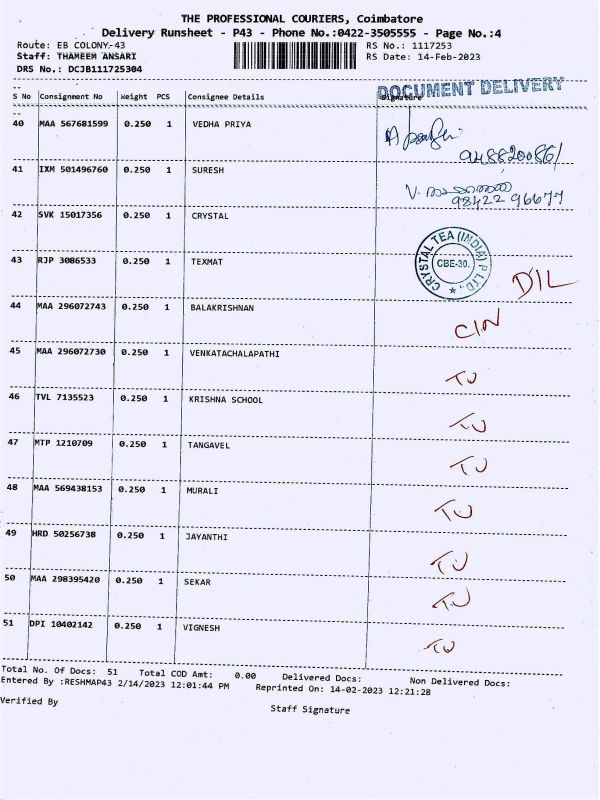 THE PROFESSIONAL COURIERS, Coimbatore
Delivery Runsheet - P43 - Phone No.:0422-3505555 - Page No.:4
Route: EB COLONY-43 RS No.: 1117253
Staff: THAMEEM ANSARI RS Date: 14-Feb-2023
DRS No.: DCJB111725304
DOCUMENT DELIVERY
S No Consignment No Weight PCS Consignee Details Signature
40 MAA 567681599 0.250 1 VEDHA PRIYA
9488200861
41 IXM 501496760 0.250 1 SURESH
98422 96677
42 SVK 15017356 0.250 1 CRYSTAL
CRYSTAL TEA (INDIA) P LTD.,
CBE-30.
43 RJP 3086533 0.250 1 TEXMAT DIL
44 MAA 296072743 0.250 1 BALAKRISHNAN CIN
45 MAA 296072730 0.250 1 VENKATACHALAPATHI TU
46 TVL 7135523 0.250 1 KRISHNA SCHOOL TU
47 MTP 1210709 0.250 1 TANGAVEL TU
48 MAA 569438153 0.250 1 MURALI TU
49 HRD 50256738 0.250 1 JAYANTHI TU
50 MAA 298395420 0.250 1 SEKAR TU
51 DPI 10402142 0.250 1 VIGNESH TU
Total No. Of Docs: 51 Total COD Amt: 0.00 Delivered Docs: Non Delivered Docs:
Entered By :RESHMAP43 2/14/2023 12:01:44 PM Reprinted On: 14-02-2023 12:21:28
Verified By Staff Signature